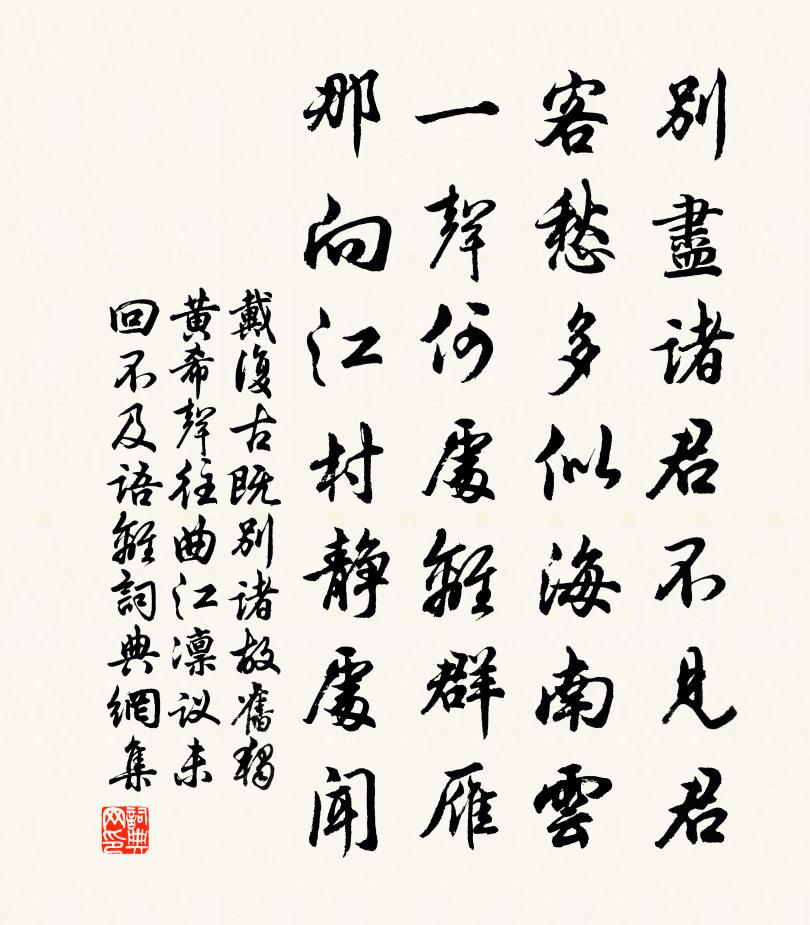 別盡諸君不見君
客愁多似海南雲
一聲何處離群雁
那向江村靜處聞
戴復古既別諸故舊獨
黃希聲往曲江凛议未
回不及語離詞典網集
詞典网印